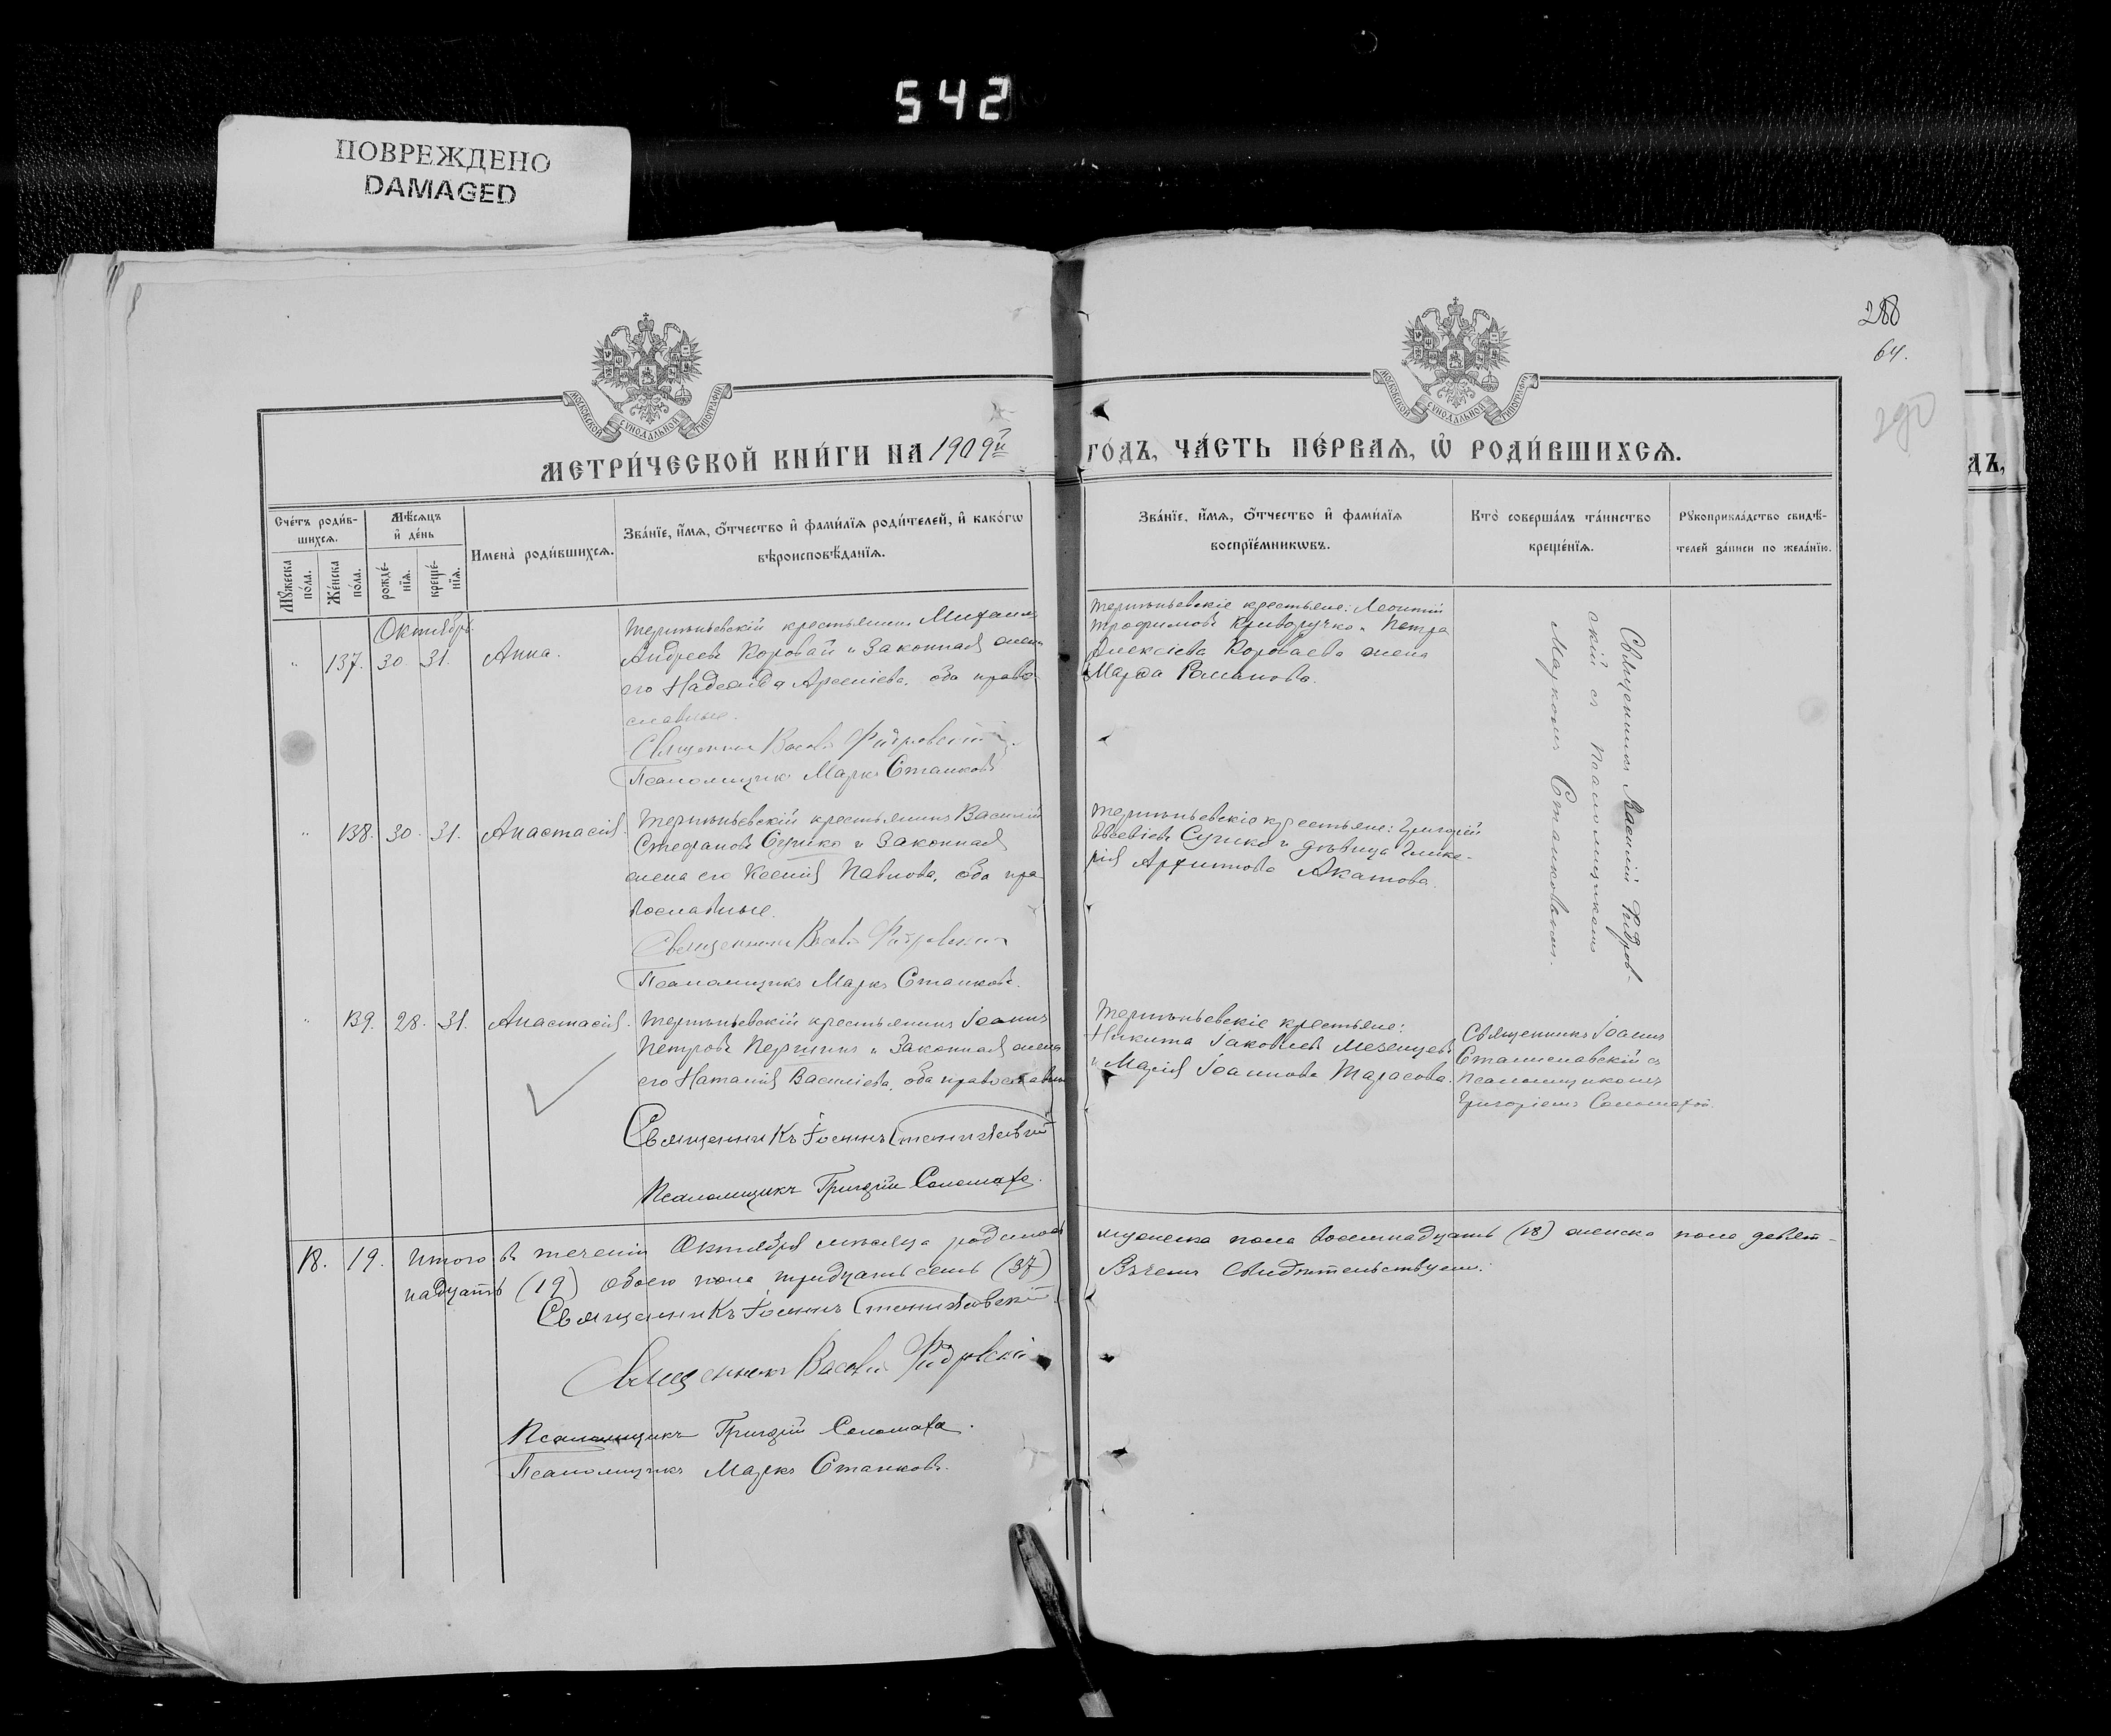 542
ПОВРЕЖДЕНО
DAMAGED
288
64.
290
МОСКОВСКОЙ СѴНОДАЛЬНОЙ ТИПОГРАФІИ
МОСКОВСКОЙ СѴНОДАЛЬНОЙ ТИПОГРАФІИ
МЕТРИ́ЧЕСКОЙ КНИ́ГИ НА 1909й
ГО́ДЪ, ЧА́СТЬ ПЕ́РВАѦ, Ѽ РОДИ́ВШИХСѦ.
ДЪ,
Сче́тъ роди́в-
шихсѧ.
Мꙋ́жеска по́ла.
Же́нска по́ла.
Мѣ́сѧцъ
и҆ де́нь
рожде́-
нїѧ.
креще́-
нїѧ.
Имена̀ роди́вшихсѧ.
Зва́нїе, и҆́мѧ, ѻ҆́тчество и҆ фами́лїѧ роди́телей, и҆ како́гѡ
вѣроисповѣ́данїѧ.
Зва́нїе, и҆́мѧ, ѻ҆́тчество и҆ фами́лїѧ
воспрїе́мникѡвъ.
Кто̀ соверша́лъ та́инство
креще́нїѧ.
Рꙋкоприкла́дство свидѣ́-
телей за́писи по жела́нїю.
Октябрь
" 137. 30. 31. Анна.
Терпѣньевскій крестьянинъ Михаилъ
Андреевъ Коровай и законная жена
его Надежда Арсеніева, оба право-
славные.
Священникъ Василій Фидровскій
Псаломщикъ Маркъ Станковъ
Терпѣньевскіе крестьяне: Леонтій
Трофимовъ Криворучко и Петра
Алексіева Короваева жена
Марѳа Романова.
Священникъ Василій Фидров-
скій съ псаломщикомъ
Маркомъ Станковымъ.
" 138. 30. 31. Анастасія.
Терпѣньевскій крестьянинъ Василій
Стефановъ Сушко и законная
жена его Ксенія Павлова, оба пра
вославные.
Священникъ Василій Фидровскій
Псаломщикъ Маркъ Станковъ.
Терпѣньевскіе крестьяне: Григорій
Евсевіевъ Сушко и дѣвица Глике-
рія Архиппова Акатова.
" 139. 28. 31. Анастасія.
Терпѣньевскій крестьянинъ Іоаннъ
Петровъ Першинъ и законная жена
его Наталія Василіева, оба православные
Священникъ Іоаннъ Станиславскій
Псаломщикъ Григорій Соломаха.
Терпѣньевскіе крестьяне:
Никита Іаковлевъ Мезенцевъ
и Марія Іоаннова Тарасова.
Священникъ Іоаннъ
Станиславскій съ
псаломщикомъ
Григоріемъ Соломахой.
18. 19. Итого въ теченіи Октября мѣсяца родилось мужеска пола восемнадцать (18) женска пола девят-
надцать (19) обоего пола тридцать семь (37) Въ чемъ свидѣтельствуемъ:
Священникъ Іоаннъ Станиславскій.
Священникъ Василій Фидровскій
Псаломщикъ Григорій Соломаха.
Псаломщикъ Маркъ Станковъ.